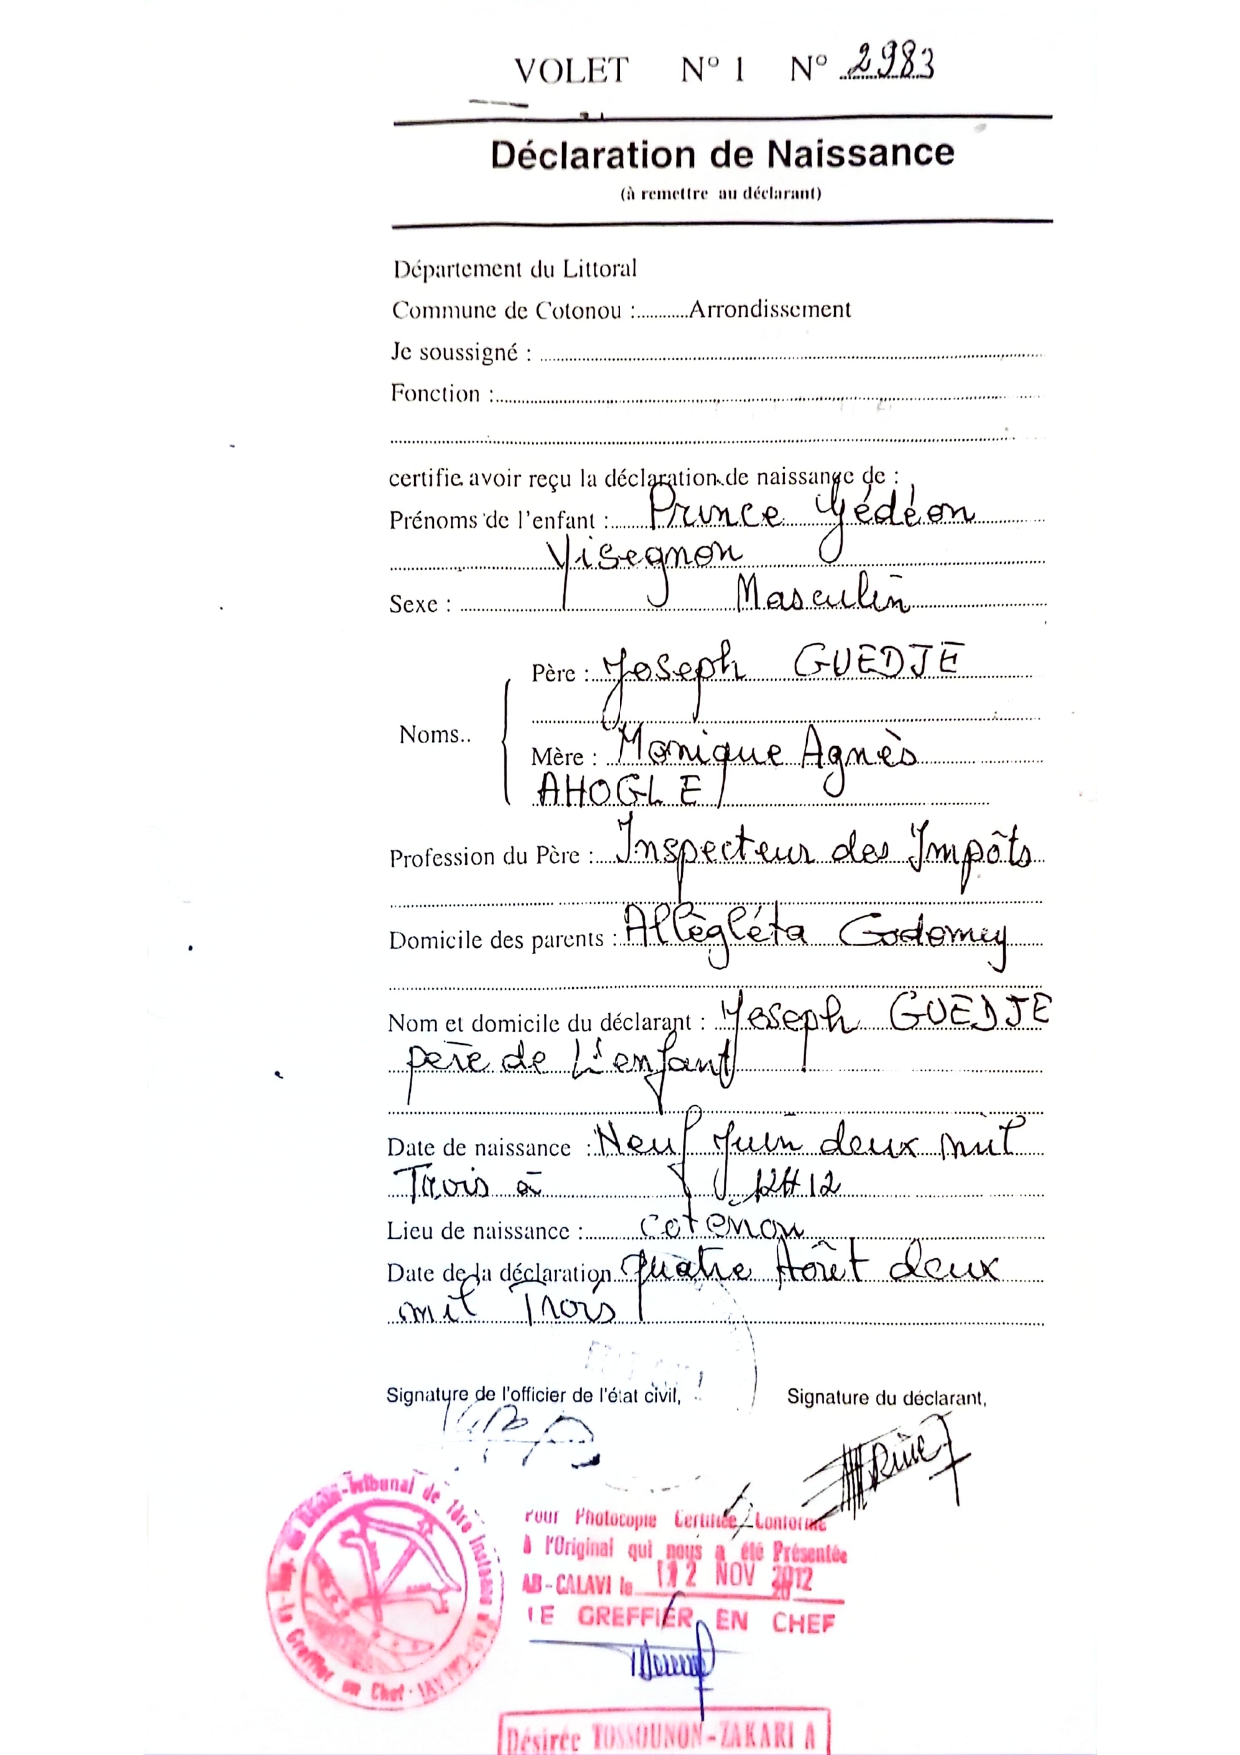 VOLET N° 1 N° 2983
Déclaration de Naissance
(à remettre au déclarant)
Département du Littoral
Commune de Cotonou :...........Arrondissement
Je soussigné :
Fonction :
certifie avoir reçu la déclaration de naissance de :
Prénoms de l'enfant : Prince Gédéon
Visegnon
Sexe : Masculin
Père : Joseph GUEDJE
Noms..
Mère : Monique Agnès
AHOGLE
Profession du Père : Inspecteur des Impôts
Domicile des parents : Allègléta Godomey
Nom et domicile du déclarant : Joseph GUEDJE
père de L'enfant
Date de naissance : Neuf Juin deux mil
Trois à 12H12
Lieu de naissance : cotonou
Date de la déclaration quatre Août deux
mil Trois
Signature de l'officier de l'état civil,
Signature du déclarant,
Pour Photocopie Certifiée Conforme
à l'Original qui nous a été Présentée
AB-CALAVI le 12 NOV 2012
LE GREFFIER EN CHEF
Tribunal de 1ère Instance
Le Greffier en Chef
Désirée TOSSOUNON-ZAKARI A